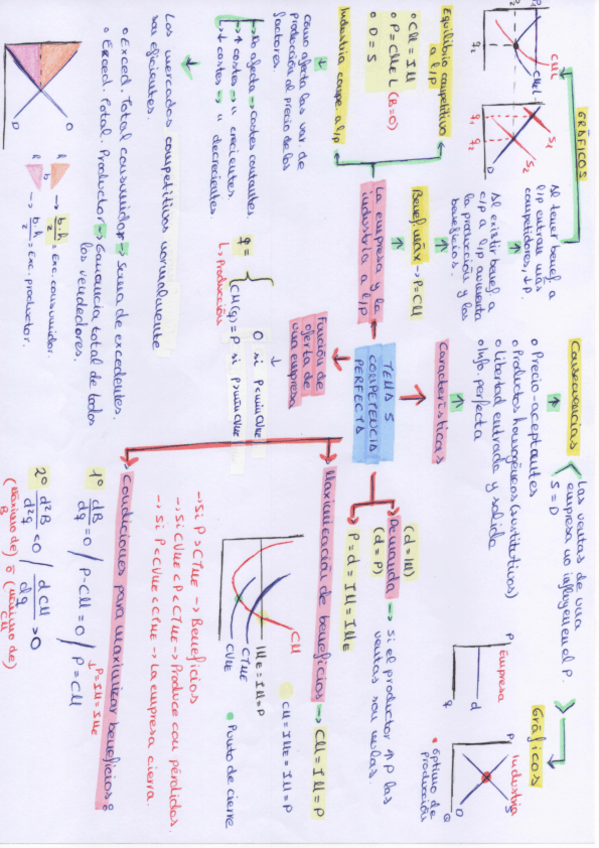 TEMA 5
COMPETENCIA
PERFECTA
Características
o Precio-aceptantes
o Productos homogéneos (sustitutivos)
o Libertad entrada y salida
o Info. perfecta
Consecuencias
Las ventas de una
empresa no influyen en el P.
S = D
Gráficos
Empresa
P
d
q
Industria
P
S
O
Q
• óptimo de
producción
Demanda → Si el productor ↑ P las
ventas son nulas.
(d = IM)
(d = P)
P = d = IM = IMe
Maximización de beneficios → CM = IM = P
CM = IMe = IM = P
CM
IMe = IM = P
CTMe
CVMe
• Punto de cierre
→ Si P > CTMe → Beneficios
→ Si CVMe < P < CTMe → Produce con pérdidas.
→ Si P < CVMe < CTMe → La empresa cierra.
Condiciones para maximizar beneficios:
1º dB/dq = 0 / P - CM = 0 / P = CM
↓ P = IM = IMe
2º d²B/d²q < 0 / dCM/dq > 0
(máximo de) B o (mínimo de) CM
Función de
oferta de
una empresa
q = { 0 si P < mín CVMe
CM(q) = P si P ≥ mín CVMe
↳ Producción
La empresa y la
industria a l/p
Benef. máx → P = CM
Al existir benef a
c/p a l/p aumenta
la producción y los
beneficios.
Al tener benef a
l/p entran más
competidores, ↓ P.
GRÁFICOS
P
CML
CMeL
q₂
S₁
S₂
D
q₁ q₂
Equilibrio competitivo
a l/p
o CM = IM
o P = CMeL (B=0)
o D = S
Industria compe. a l/p
como afecta las var. de
producción al precio de los
factores.
No afecta → costes constantes.
↑ costes → " crecientes
↓ costes → " decrecientes
Los mercados competitivos normalmente
son eficientes.
o Exced. Total consumidor → Suma de excedentes.
o Exced. Total. Productor → Ganancia total de todos
los vendedores.
O
D
h
b
→ b·h/2 = exc. consumidor.
h
b
→ b·h/2 = Exc. productor.